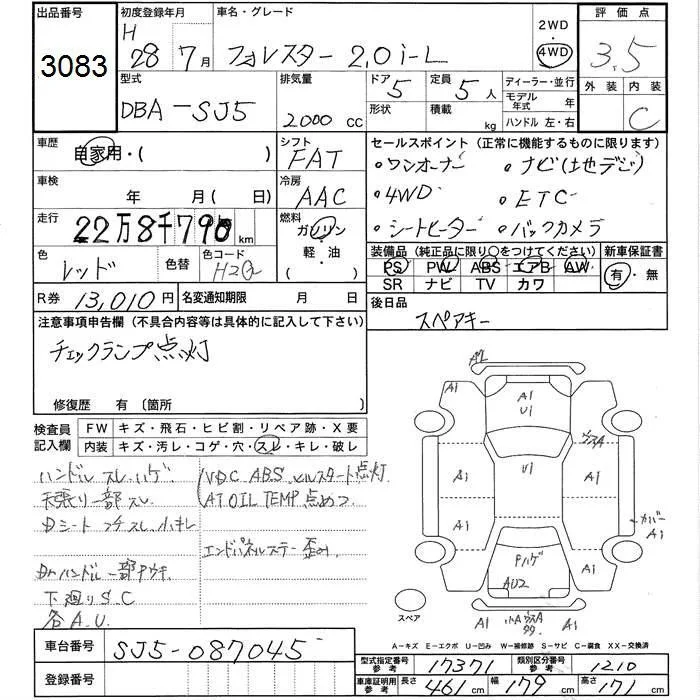 出品番号 初度登録年月 車名・グレード 2WD 評価点
3083 H 28年 7月 フォレスター 2.0i-L 4WD 3.5
型式 排気量 ドア 定員 ディーラー・並行 外装 内装
DBA-SJ5 2000cc 5 5人 モデル年式 年 C
形状 積載 kg ハンドル 左・右
車歴 自家用・( ) シフト FAT セールスポイント (正常に機能するものに限ります)
・ワンオーナー ・ナビ(地デジ)
車検 年 月(日) 冷房 AAC ・4WD ・ETC
走行 22万8千790km 燃料 ガソリン ・シートヒーター ・バックカメラ
軽・油 ( )
装備品 (純正品に限り○をつけてください) 新車保証書
色 レッド 色替 色コード H2Q PS PW ABS エアB AW 有・無
SR ナビ TV カワ
R券 13,010円 名変通知期限 月 日 後日品
スペアキー
注意事項申告欄 (不具合内容等は具体的に記入して下さい)
チェックランプ点灯
修復歴 有 〔箇所
検査員記入欄 FW キズ・飛石・ヒビ割・リペア跡・X要
内装 キズ・汚レ・コゲ・穴・スレ・キレ・破レ
ハンドルスレ、ハゲ VDC ABS ヒルスタート点灯
天張り一部スレ AT OIL TEMP 点めつ
Dシートフチスレ、小キレ
エンドパネルステー歪み
Drハンドル一部
下廻りS.C
各A.U
A1 A1 A1 U1 A1
A1 U1 A1
A1 A1 カバーA1
A1 Pハゲ AU2 A1
スペア A1 A1
A-キズ E-エクボ U-凹み W-補修跡 S-サビ C-腐食 XX-交換済
車台番号 SJ5-087045
型式指定番号 参考 17371 類別区分番号 参考 1210
登録番号 車庫証明用 参考 長さ 461cm 幅 179cm 高さ 171cm